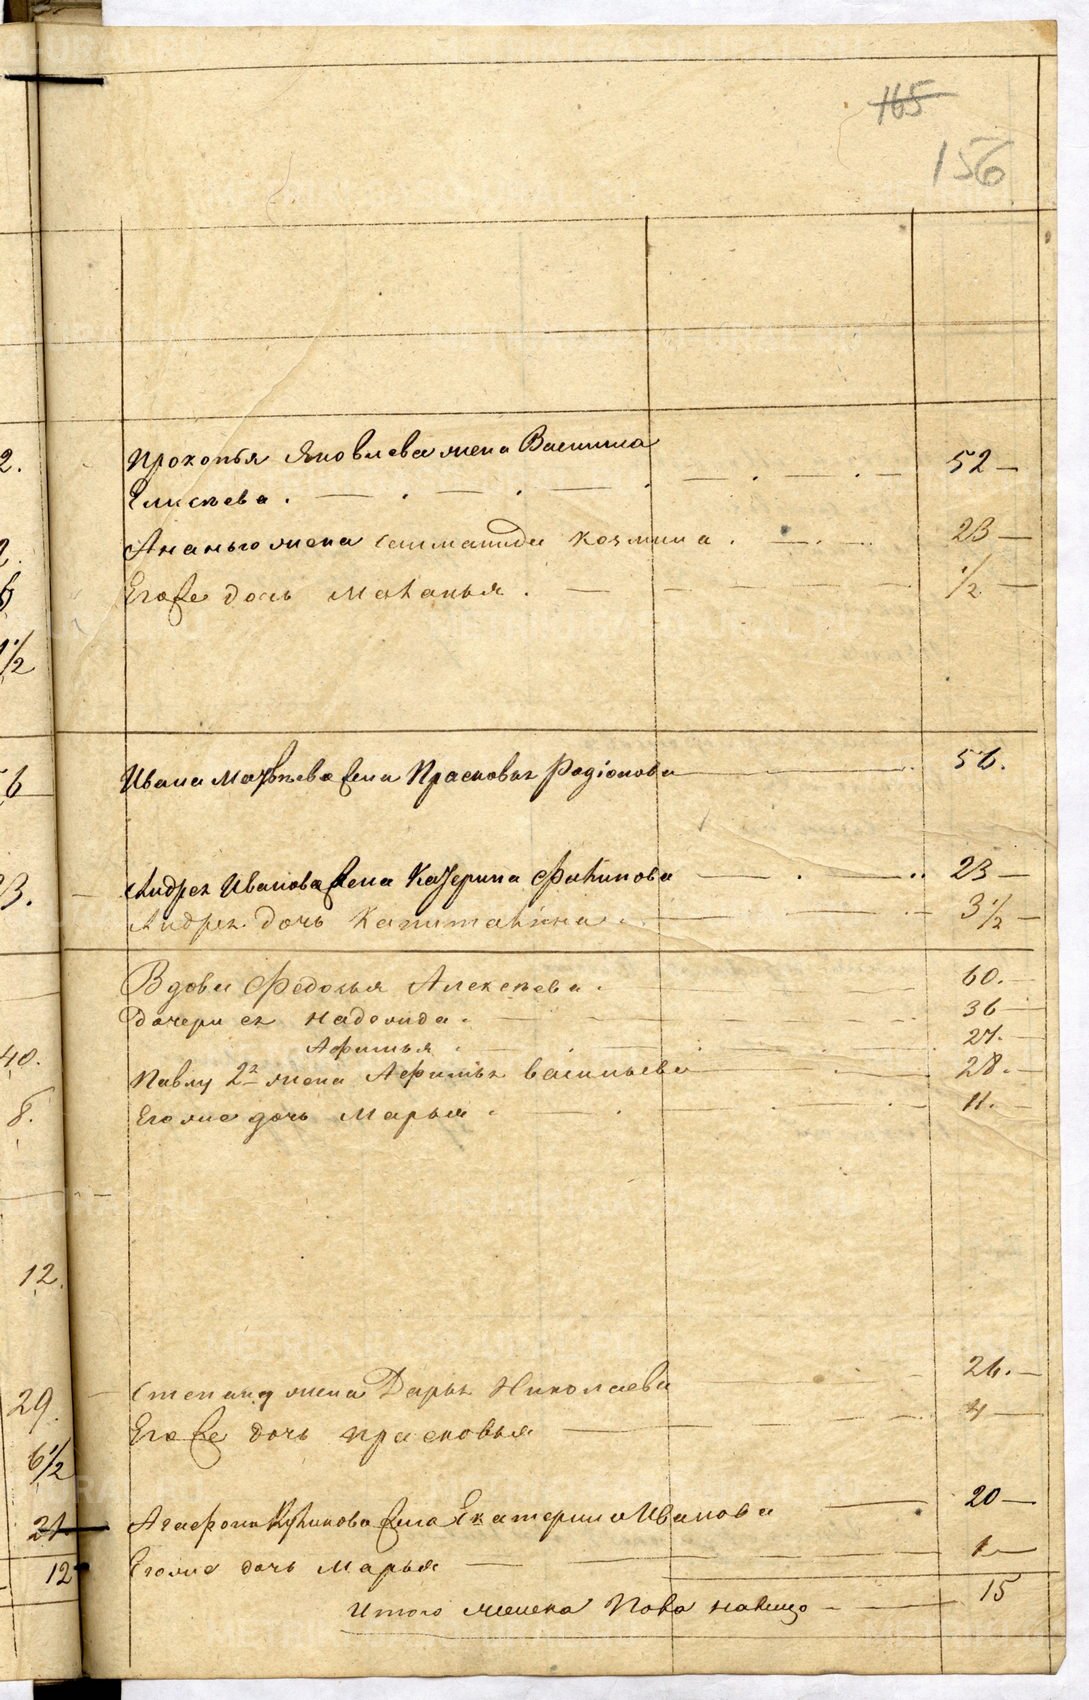 165
156
Прокопья Яковлева жена Василиса
Елисѣева . — . — . — . — . — 52 —
Ананью жена Соломонида Козмина . — . — 23 —
Егоже дочь Маланья . — — — — 1/2 —
Ивана Матвѣева жена Прасковья Родіонова — 56.
Андрея Иванова жена Катерина Филипова — . — .. 23 —
Андрея дочь Капиталина . — — — 3 1/2 —
Вдова Федосья Алексѣева . — — 60. —
Дочери ея Надежда . — — — 36 —
Афимья . — — — 27. —
Павлу 2я жена Афимья Васильева — — 28. —
Егоже дочь Марья . — — — 11. —
Степану жена Дарья Николаева — — 26. —
Егоже дочь Прасковья — — — 4 —
Агафона Куликова жена Екатерина Иванова — 20 —
Егоже дочь Марья — — — 1 —
Итого женска пола налицо — — 15
2.
1/2
6
3.
40.
8.
12.
29.
6 1/2
21
12